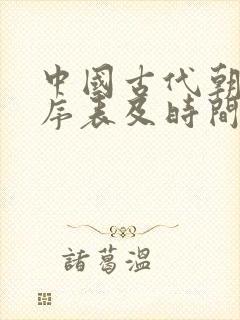 中國古代朝
序表及時間
諸葛溫